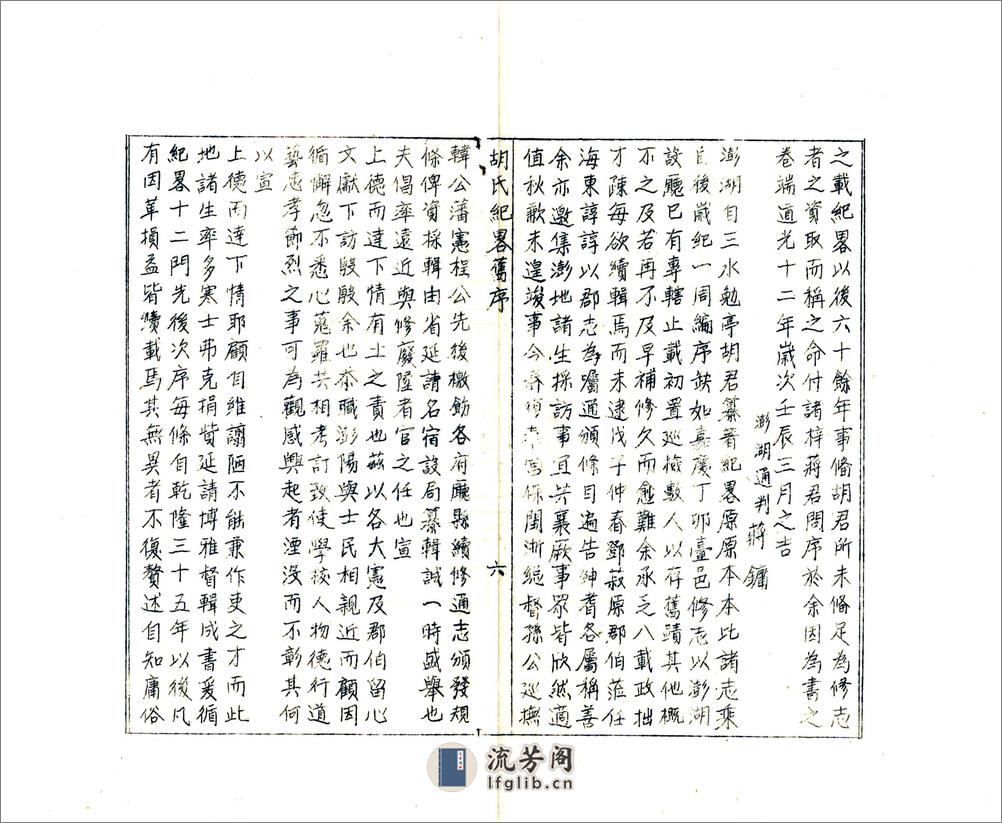 之載紀畧以後六十餘年事脩胡君所未脩足為修志
者之資取而稱之命付諸梓蔣君問序於余因為書之
卷端道光十二年歲次壬辰三月之吉
澎湖通判蔣鏞
澎湖自三水勉亭胡君纂著紀畧原原本本比諸志乘
自後歲紀一周編序缺如嘉慶丁卯臺邑修志以澎湖
設廳已有專轄止載初置巡檢數人以存舊蹟其他概
不之及若再不及早補修久而愈難余承乏八載政拙
才陳每欲續輯焉而未逮戊子仲春鄧菽原郡伯蒞任
海東諄諄以郡志為屬通頒條目遍告紳耆各屬稱善
余亦邀集澎地諸生採訪事宜共襄厥事眾皆欣然適
值秋歉未遑竣事今春頃奉宮保閩浙總督孫公巡撫
胡氏紀畧舊序
六
韓公藩憲程公先後檄飭各府廳縣續修通志頒發規
條俾資採輯由省延請名宿設局纂輯誠一時盛舉也
夫倡率遠近與修廢墜者官之任也宣
上德而達下情有土之責也茲以各大憲及郡伯留心
文獻下訪殷殷余也忝職澎陽與士民相親近而顧因
循懈忽不悉心蒐羅共相考訂致使學校人物德行道
藝忠孝節烈之事可為觀感興起者湮沒而不彰其何
以宣
上德而達下情耶顧自維譾陋不能兼作吏之才而此
地諸生率多寒士弗克捐貲延請博雅督輯成書爰循
紀畧十二門先後次序每條自乾隆三十五年以後凡
有因革損益皆續載焉其無異者不復贅述自知庸俗
流芳阁
lfglib.cn